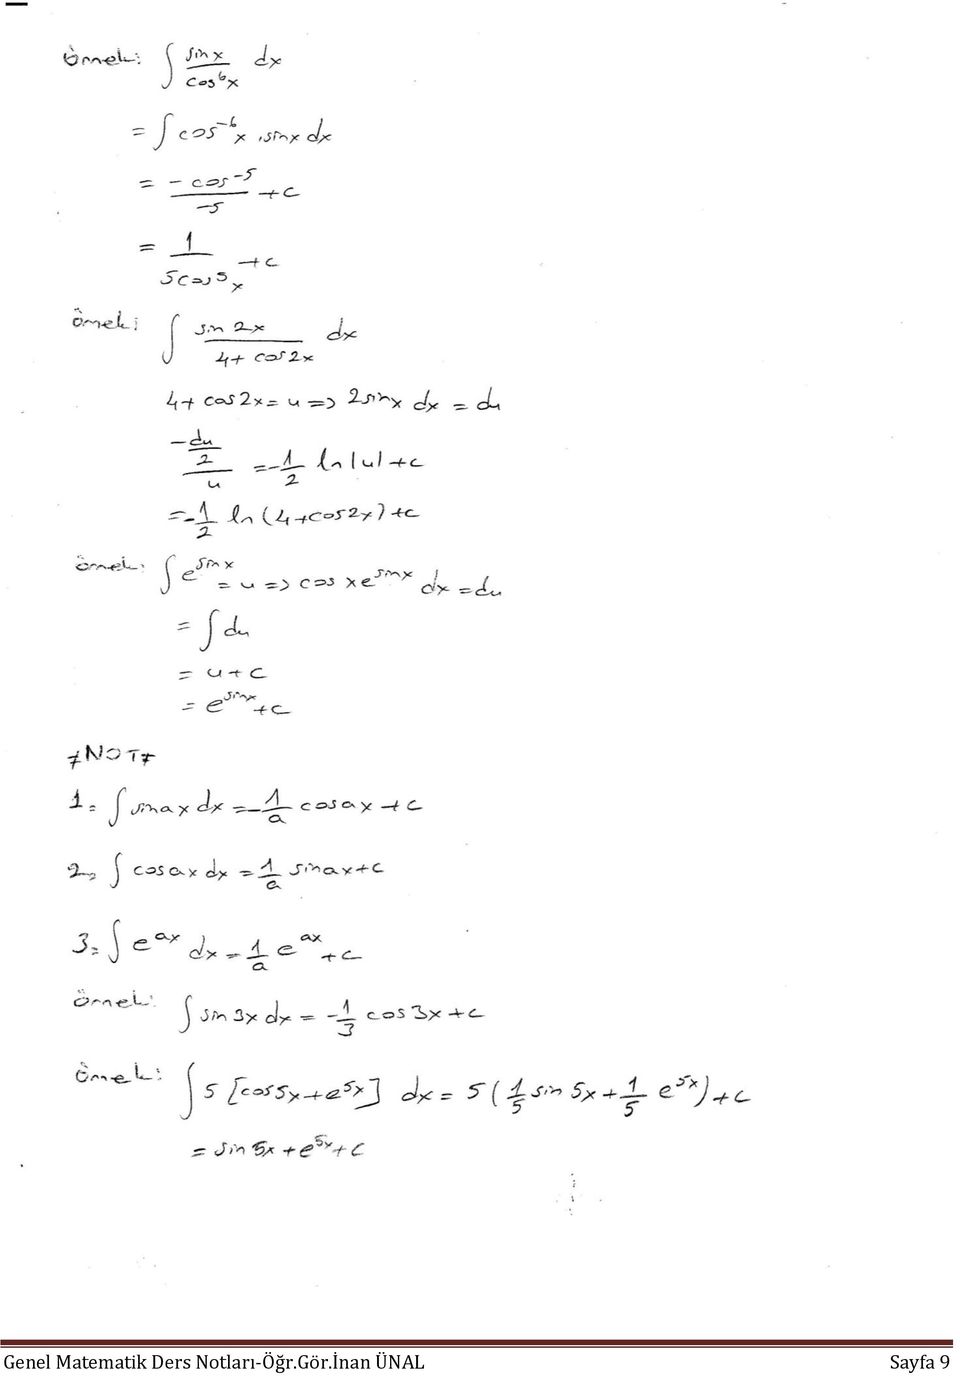 Örnek: ∫ sinx/cos⁶x dx
= ∫ cos⁻⁶x . sinx dx
= -cos⁻⁵/-5 + c
= 1/5cos⁵x + c
örnek: ∫ sin 2x/4+cos2x dx
4+cos2x = u => 2sinx dx = du
-du/2/u = -1/2 ln|u| + c
= -1/2 ln(4+cos2x) + c
örnek: ∫ e^sinx = u => cosx e^sinx dx = du
= ∫ du
= u + c
= e^sinx + c
≠NOT≠
1= ∫ sinax dx = -1/a cosax + c
2= ∫ cosax dx = 1/a sinax + c
3= ∫ e^ax dx = 1/a e^ax + c
örnek: ∫ sin3x dx = -1/3 cos3x + c
Örnek: ∫ 5 [cos5x + e^5x] dx = 5 (1/5 sin 5x + 1/5 e^5x) + c
= sin 5x + e^5x + c
Genel Matematik Ders Notları-Öğr.Gör.İnan ÜNAL Sayfa 9